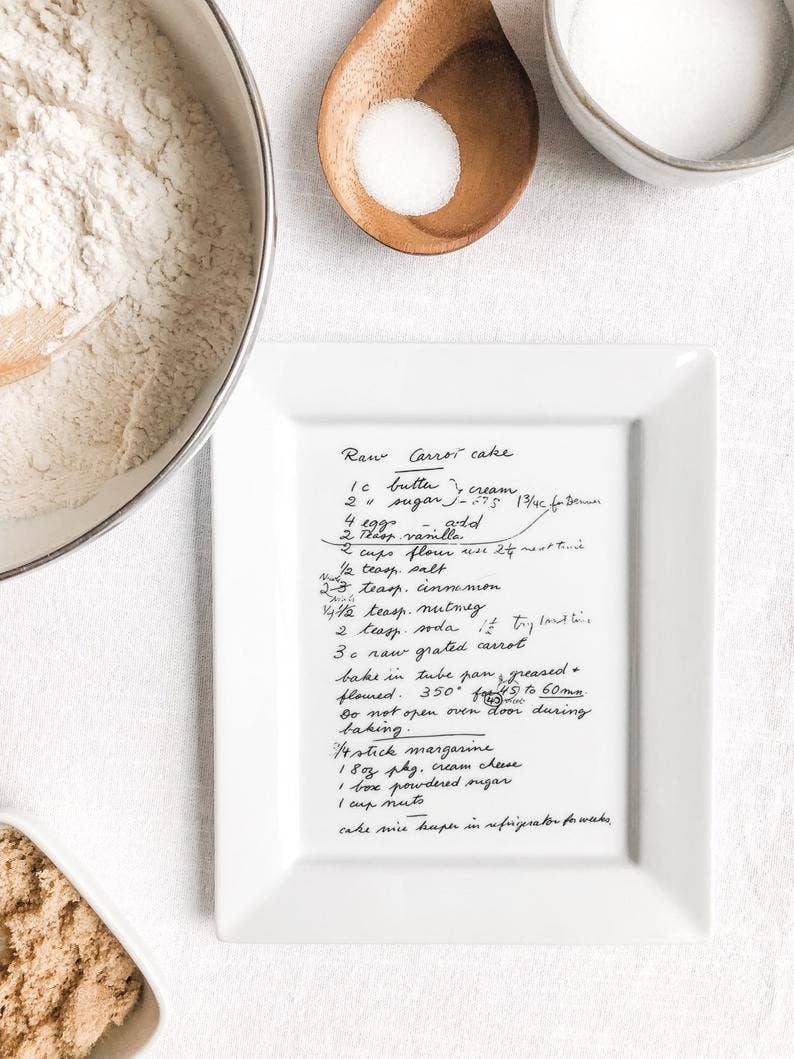 Raw Carrot cake
1 c butter } cream
2 " sugar } - 1 3/4 c for Denver
4 eggs - add
2 Teasp. vanilla.
2 cups flour use 2 1/4 next time
1/2 teasp. salt
2 3 teasp. cinnamon
1/4 1/2 teasp. nutmeg
2 teasp. soda 1 1/2 Try time
3 c raw grated carrot
bake in tube pan, greased +
floured. 350° for 45 to 60 mn.
40
Do not open oven door during
baking.
3/4 stick margarine
1 8oz pkg. cream cheese
1 box powdered sugar
1 cup nuts
cake nice keeper in refrigerator for weeks.